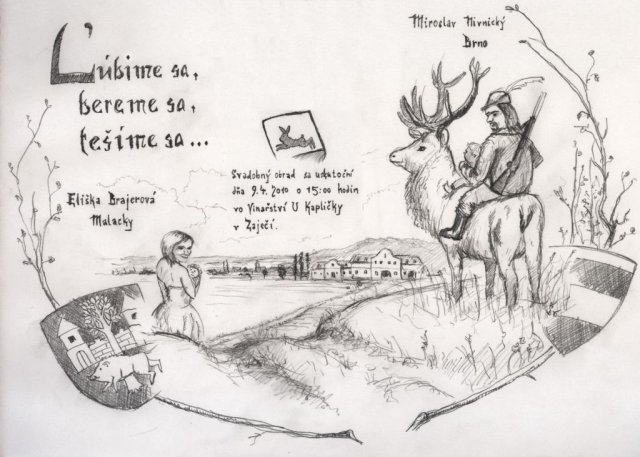 Ľúbime sa,
bereme sa,
tešíme sa...
Miroslav Nivnický
Brno
Svadobný obrad sa uskutoční
dňa 9.4.2010 o 15:00 hodín
vo Vinařství U Kapličky
v Zaječí.
Eliška Brajerová
Malacky